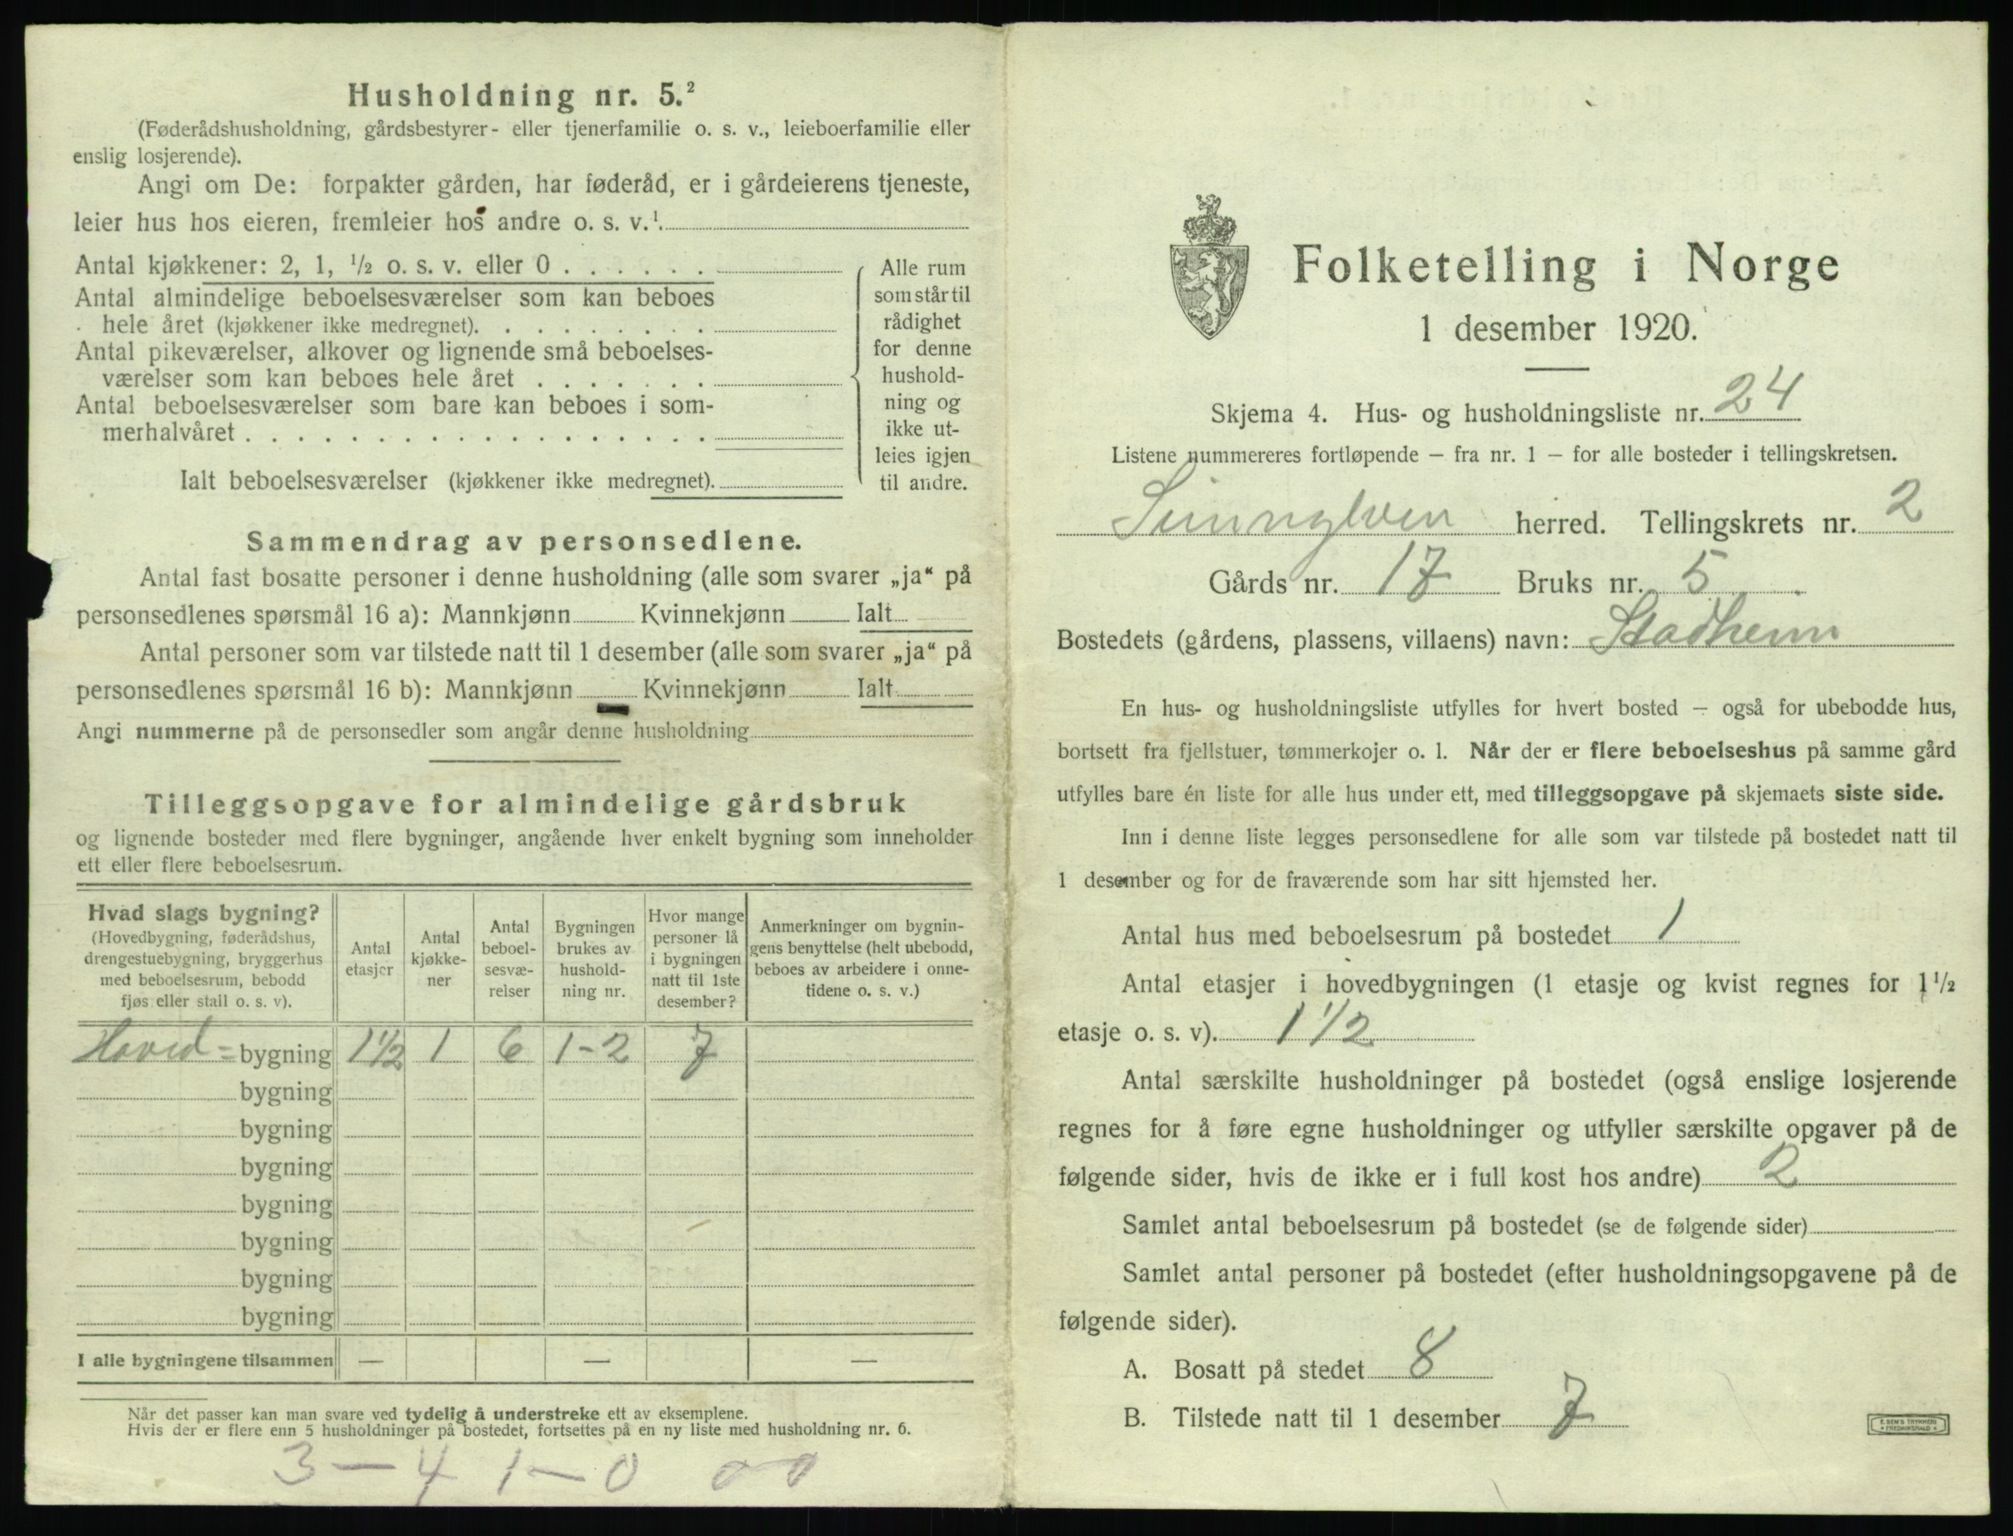 Husholdning nr. 5.²
(Føderådshusholdning, gårdsbestyrer- eller tjenerfamilie o. s. v., leieboerfamilie eller
enslig losjerende).
Angi om De: forpakter gården, har føderåd, er i gårdeierens tjeneste,
leier hus hos eieren, fremleier hos andre o. s. v.¹
Antal kjøkkener: 2, 1, ½ o. s. v. eller 0 . . . . . .
Antal almindelige beboelsesværelser som kan beboes
hele året (kjøkkener ikke medregnet). . . . . . . . .
Antal pikeværelser, alkover og lignende små beboelses-
værelser som kan beboes hele året . . . . . . .
Antal beboelsesværelser som bare kan beboes i som-
merhalvåret . . . . . . . . . . . . . . . . . .
Alle rum
som står til
rådighet
for denne
hushold-
ning og
ikke ut-
leies igjen
til andre.
Ialt beboelsesværelser (kjøkkener ikke medregnet).
Sammendrag av personsedlene.
Antal fast bosatte personer i denne husholdning (alle som svarer „ja“ på
personsedlenes spørsmål 16 a): Mannkjønn Kvinnekjønn Ialt
Antal personer som var tilstede natt til 1 desember (alle som svarer „ja“ på
personsedlenes spørsmål 16 b): Mannkjønn Kvinnekjønn Ialt
Angi nummerne på de personsedler som angår denne husholdning
Tilleggsopgave for almindelige gårdsbruk
og lignende bosteder med flere bygninger, angående hver enkelt bygning som inneholder
ett eller flere beboelsesrum.
Hvad slags bygning?
(Hovedbygning, føderådshus,
drengestuebygning, bryggerhus
med beboelsesrum, bebodd
fjøs eller stall o. s. v.).
Antal
etasjer
Antal
kjøkke-
ner
Antal
beboel-
sesvæ-
relser
Bygningen
brukes av
hushold-
ning nr.
Hvor mange
personer lå
i bygningen
natt til 1ste
desember?
Anmerkninger om bygnin-
gens benyttelse (helt ubebodd,
beboes av arbeidere i onne-
tidene o. s. v.)
Hoved= bygning 1½ 1 6 1-2 7
bygning
bygning
bygning
bygning
bygning
bygning
bygning
I alle bygningene tilsammen — — —
Når det passer kan man svare ved tydelig å understreke ett av eksemplene.
Hvis der er flere enn 5 husholdninger på bostedet, fortsettes på en ny liste med husholdning nr. 6.
3 — 4 1 — 0 0 — 0
Folketelling i Norge
1 desember 1920.
Skjema 4. Hus- og husholdningsliste nr. 24
Listene nummereres fortløpende – fra nr. 1 – for alle bosteder i tellingskretsen.
Sunnylven herred. Tellingskrets nr. 2
Gårds nr. 17 Bruks nr. 5
Bostedets (gårdens, plassens, villaens) navn: Stadheim
En hus- og husholdningsliste utfylles for hvert bosted – også for ubebodde hus,
bortsett fra fjellstuer, tømmerkojer o. l. Når der er flere beboelseshus på samme gård
utfylles bare én liste for alle hus under ett, med tilleggsopgave på skjemaets siste side.
Inn i denne liste legges personsedlene for alle som var tilstede på bostedet natt til
1 desember og for de fraværende som har sitt hjemsted her.
Antal hus med beboelsesrum på bostedet 1
Antal etasjer i hovedbygningen (1 etasje og kvist regnes for 1½
etasje o. s. v). 1½
Antal særskilte husholdninger på bostedet (også enslige losjerende
regnes for å føre egne husholdninger og utfyller særskilte opgaver på de
følgende sider, hvis de ikke er i full kost hos andre) 2
Samlet antal beboelsesrum på bostedet (se de følgende sider)
Samlet antal personer på bostedet (efter husholdningsopgavene på de
følgende sider).
A. Bosatt på stedet 8
B. Tilstede natt til 1 desember 7